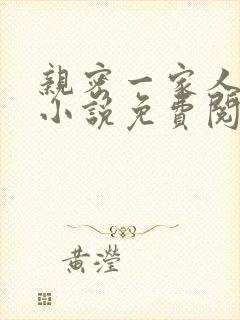 親密一家人
小說免費閱
黃瀅